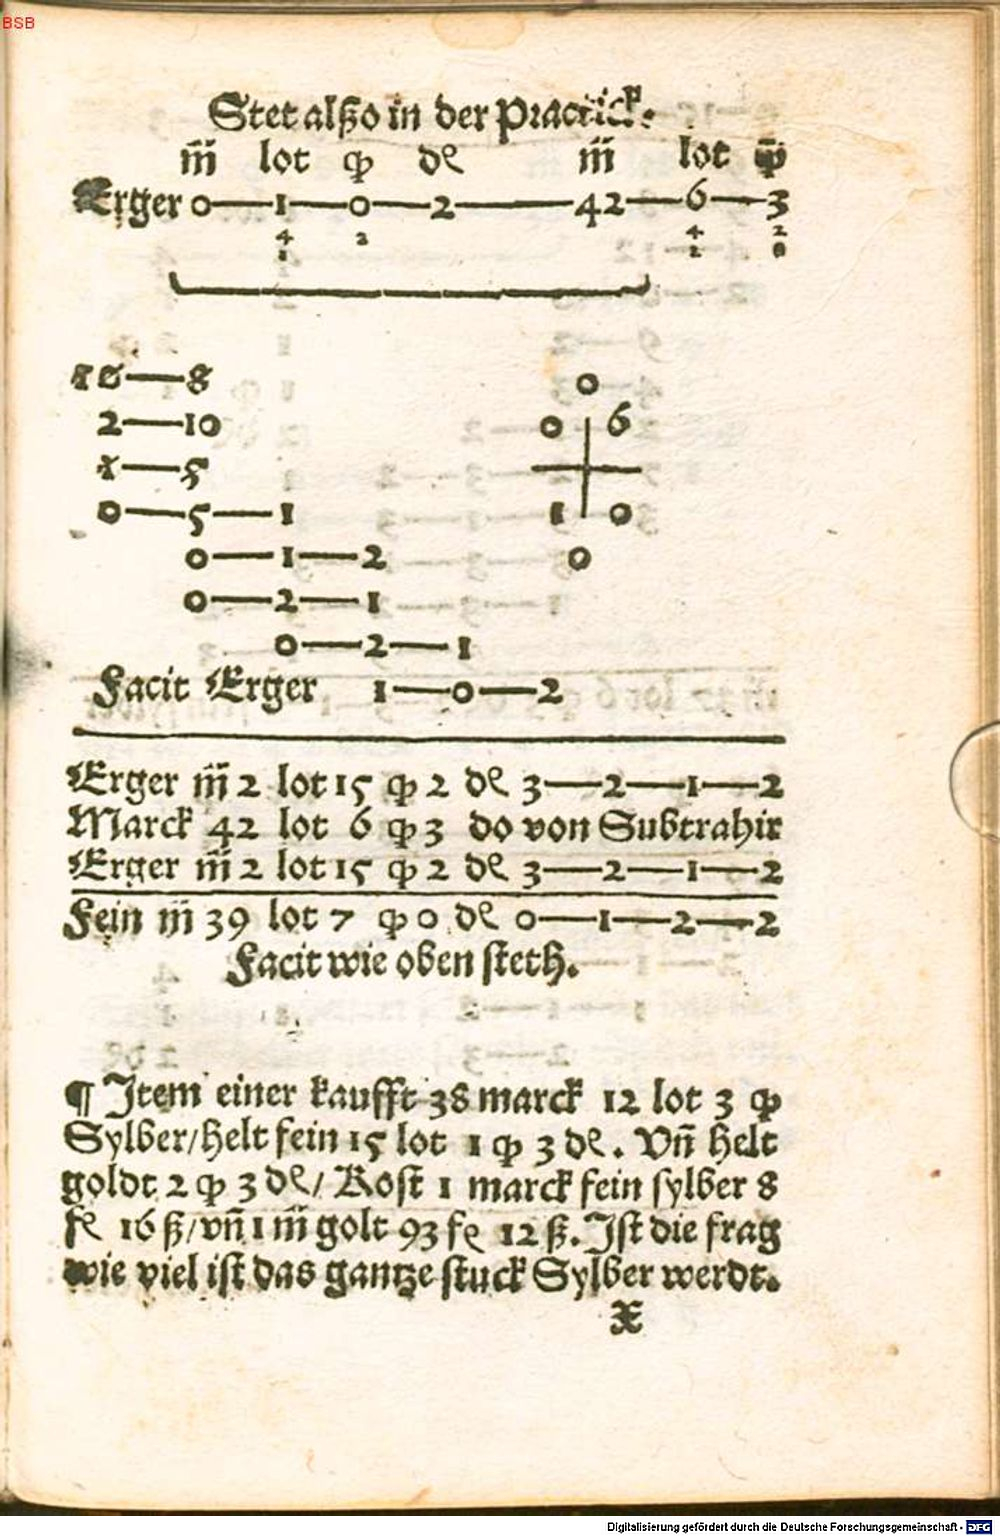 BSB
Stet alßo in der Practick.
m̃ lot q̃ď m̃ lot q̃
Erger 0—1—0—2——42—6—3
4 2 4 2
1 2 8
16—8 0
2—10 0 6
1—5
0—5—1 1 0
0—1—2 0
0—2—1
0—2—1
Facit Erger 1—0—2
Erger m̃ 2 lot 15 qp 2 dɫ 3—2—1—2
Marck 42 lot 6 qp 3 do von Subtrahir
Erger m̃ 2 lot 15 qp 2 dɫ 3—2—1—2
Fein m̃ 39 lot 7 qp 0 dɫ 0—1—2—2
Facit wie oben steth.
¶ Item einer kaufft 38 marck 12 lot 3 qp
Sylber/helt fein 15 lot 1 qp 3 dɫ. Vñ helt
goldt 2 qp 3 dɫ/ Kost 1 marck fein sylber 8
fɫ 16 ß/vñ 1 m̃ golt 93 fɫ 12 ß. Ist die frag
wie viel ist das gantze stuck Sylber werdt.
X
Digitalisierung gefördert durch die Deutsche Forschungsgemeinschaft - DFG